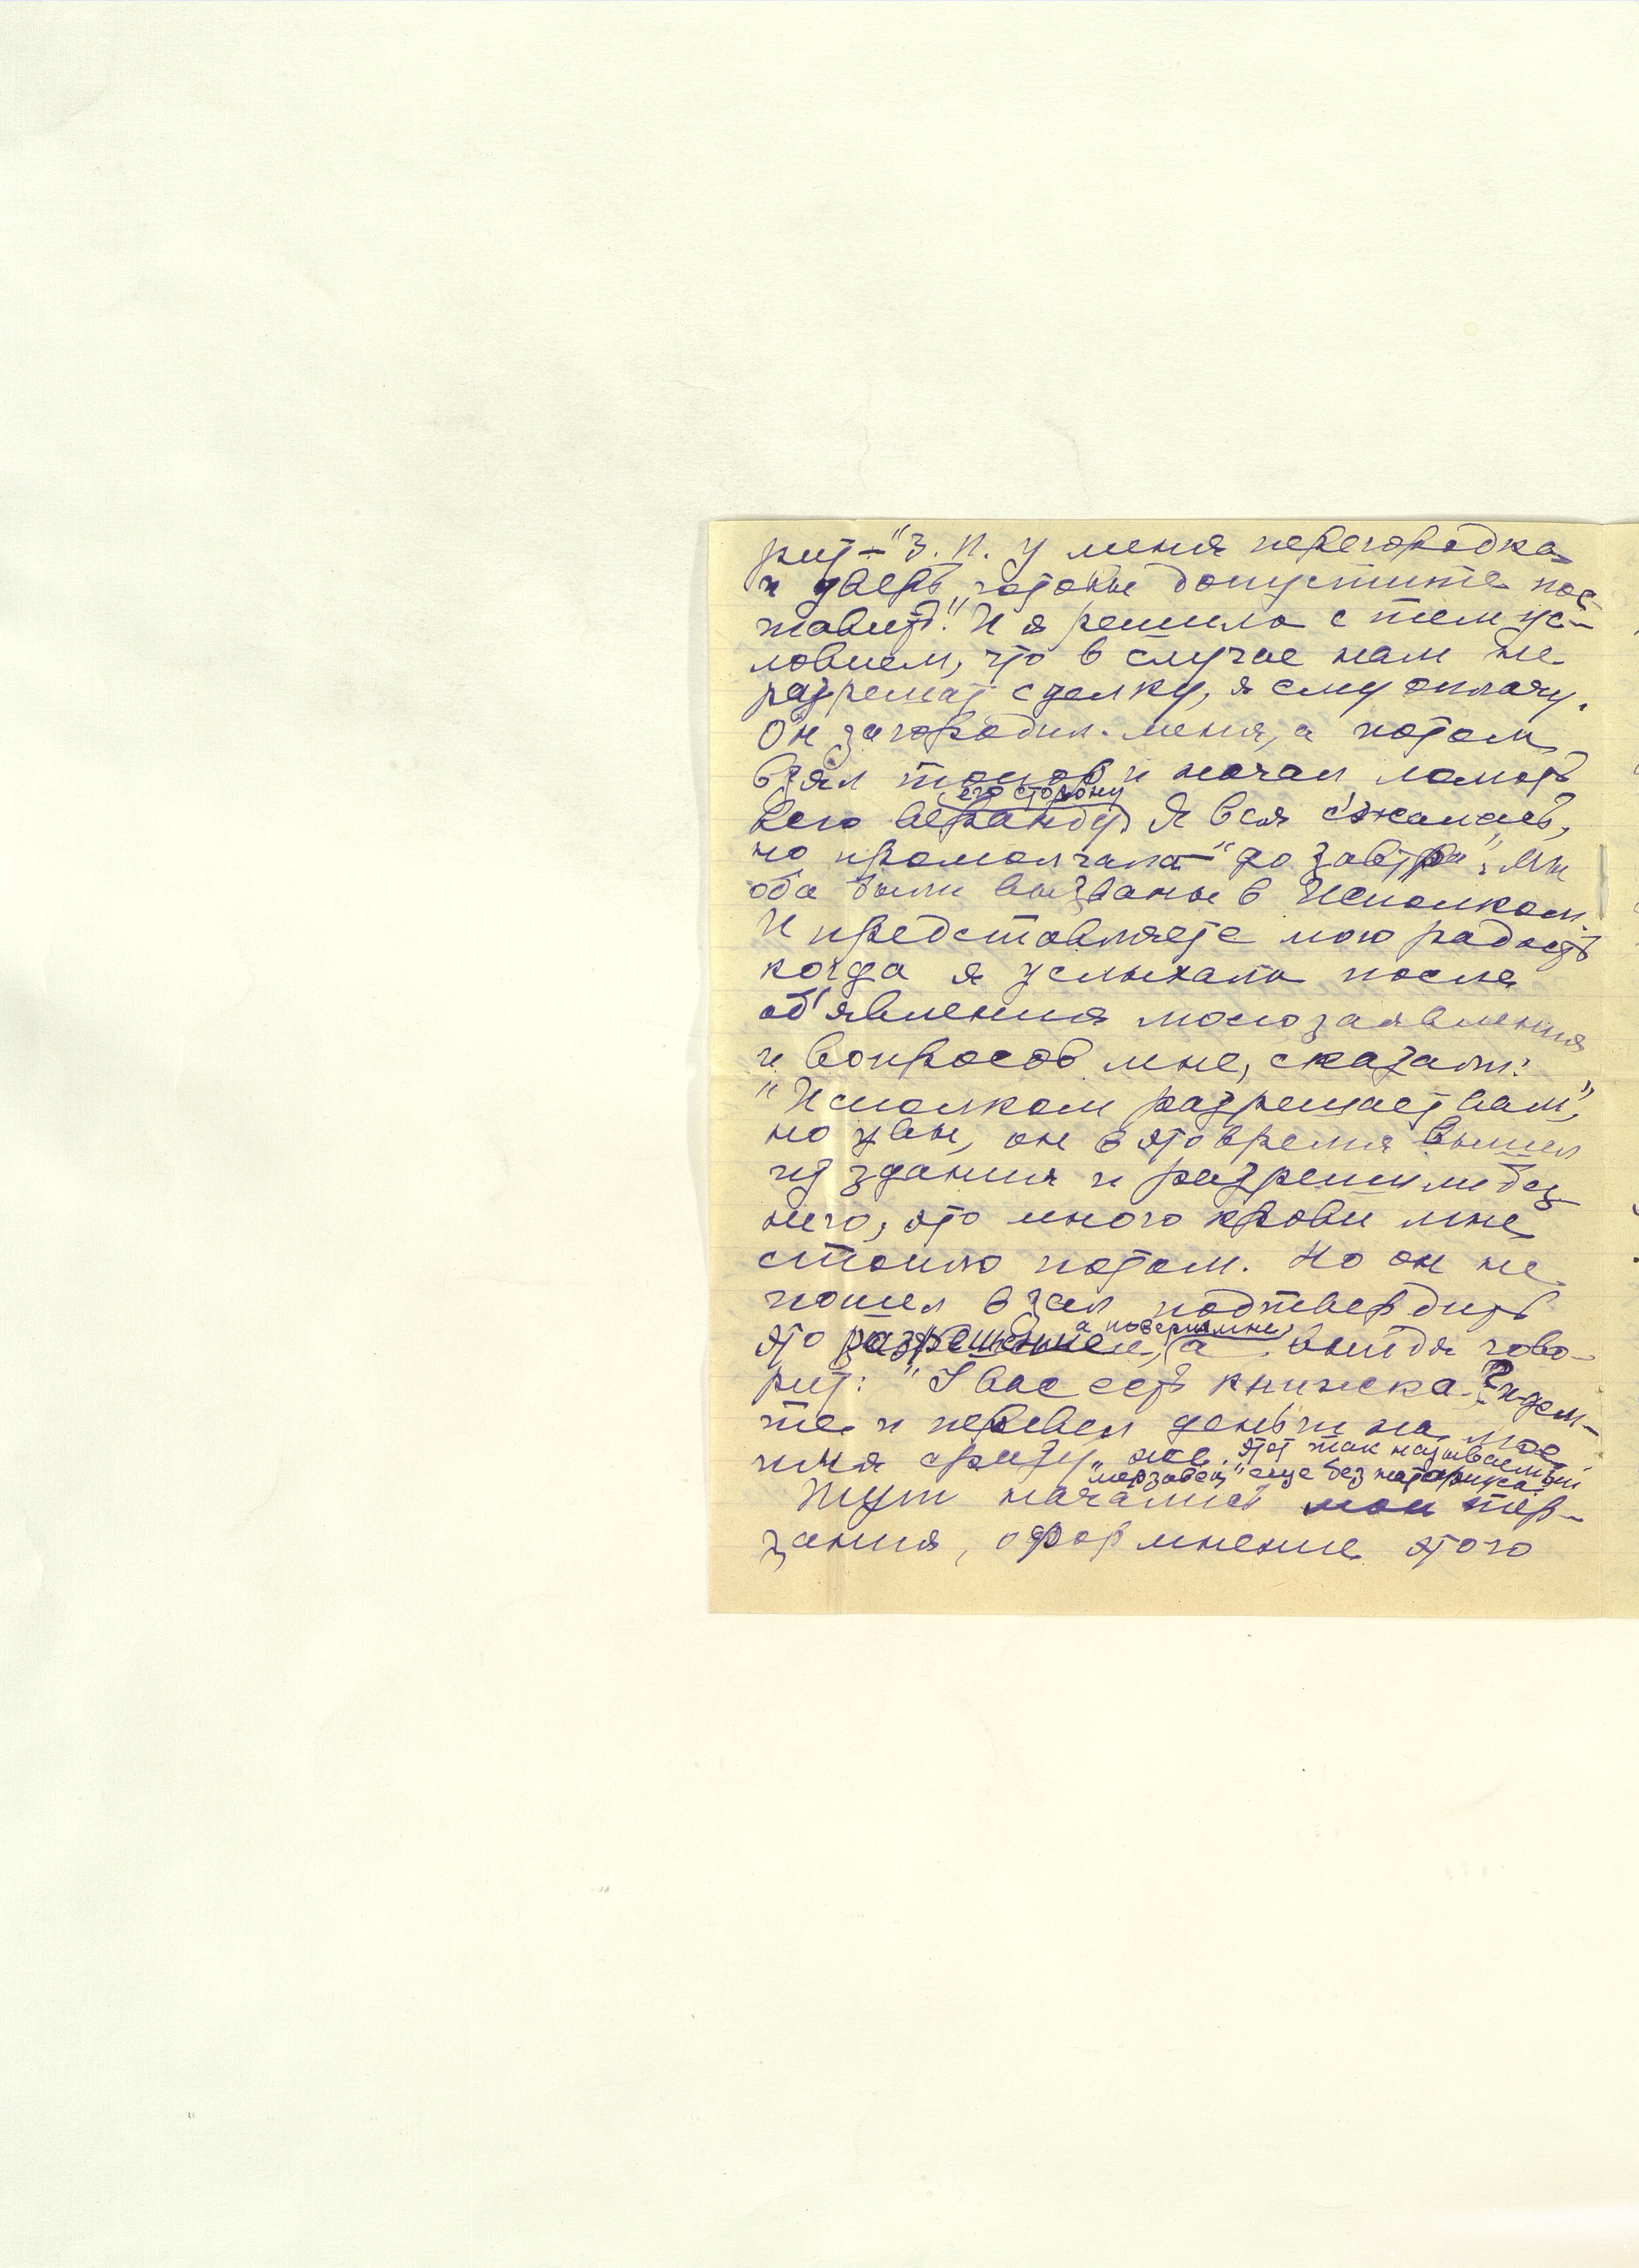 рит – "З. П. у меня перегородка
и дверь готовы допустите пос-
тавить!" И я решила с тем ус-
ловием, что в случае нам не
разрешат сделку, я ему оплачу.
Он загородил меня, а потом
взял топор и начал ломать
всю веранду его сторону Я вся с'жалась,
но промолчала – "до завтра". Мы
оба были вызваны в Исполком.
И представляете мою радость
когда я услыхала после
об'явления моего заявления
и вопросов мне, сказали:
"Исполком разрешает вам",
но увы, он в это время вышел
из здания и разрешили без
него, это много крови мне
стоило потом. Но он не
пошел в зал подтвердить
это разрешение, а поверил мне, а выйдя гово-
рит: "У вас есть книжка? идем-
те и перевел деньги на мое
имя сразу же. этот так называемый
"мерзавец" еще без нотариуса
Тут начались мои тер-
зания, оформление этого